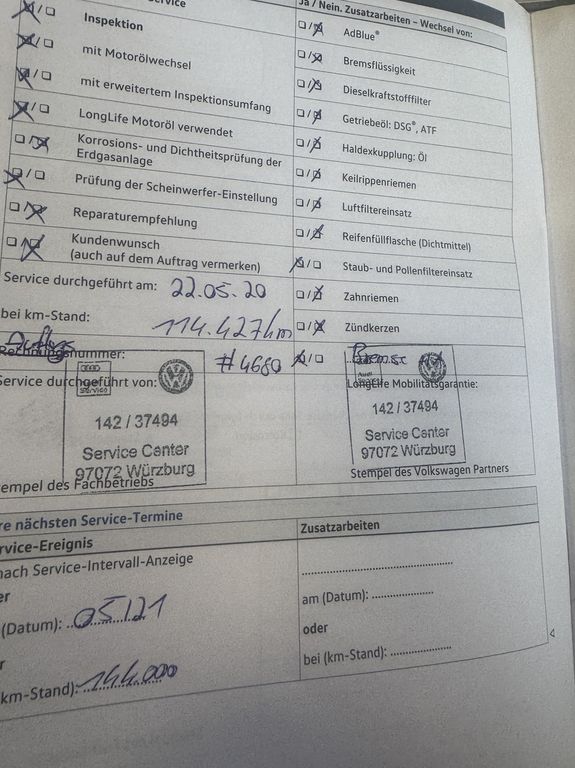 Service
Ja / Nein. Zusatzarbeiten – Wechsel von:
Inspektion
AdBlue®
mit Motorölwechsel
Bremsflüssigkeit
mit erweitertem Inspektionsumfang
Dieselkraftstofffilter
LongLife Motoröl verwendet
Getriebeöl: DSG®, ATF
Korrosions- und Dichtheitsprüfung der
Erdgasanlage
Haldexkupplung: Öl
Prüfung der Scheinwerfer-Einstellung
Keilrippenriemen
Reparaturempfehlung
Luftfiltereinsatz
Kundenwunsch
(auch auf dem Auftrag vermerken)
Reifenfüllflasche (Dichtmittel)
Staub- und Pollenfiltereinsatz
Service durchgeführt am: 22.05.20
Zahnriemen
bei km-Stand: 114.427km
Zündkerzen
Auftrgs
Rechnungsnummer: #4680
Service durchgeführt von:
LongLife Mobilitätsgarantie:
Audi
Service
142 / 37494
Service Center
97072 Würzburg
Stempel des Fachbetriebs
Audi
142 / 37494
Service Center
97072 Würzburg
Stempel des Volkswagen Partners
re nächsten Service-Termine
rvice-Ereignis
Zusatzarbeiten
nach Service-Intervall-Anzeige
er
(Datum): 05/21
am (Datum):
oder
r
km-Stand): 144.000
bei (km-Stand):